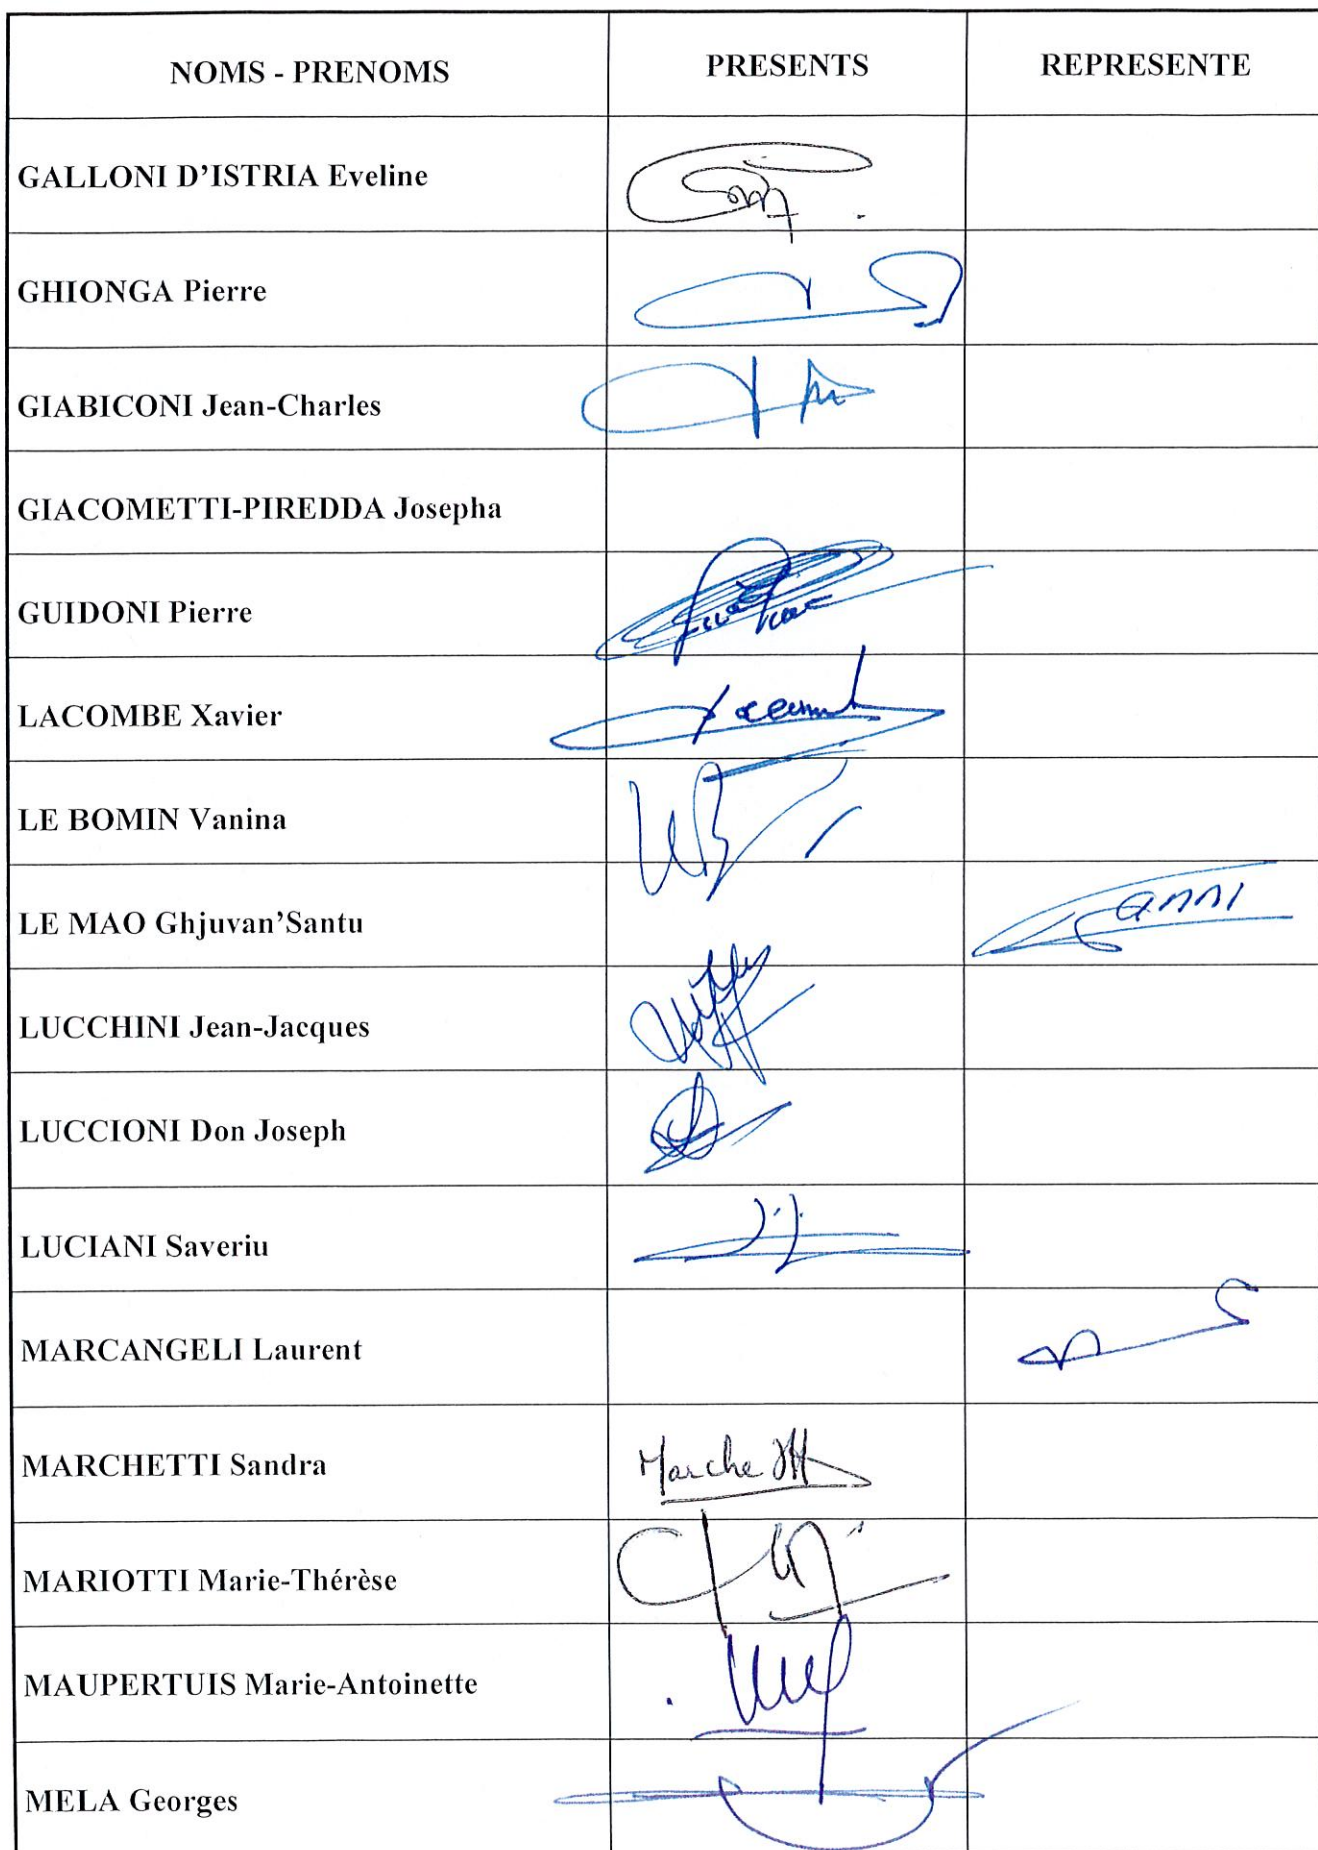 NOMS - PRENOMS PRESENTS REPRESENTE
GALLONI D'ISTRIA Eveline
GHIONGA Pierre
GIABICONI Jean-Charles
GIACOMETTI-PIREDDA Josepha
GUIDONI Pierre
LACOMBE Xavier
LE BOMIN Vanina
LE MAO Ghjuvan'Santu
LUCCHINI Jean-Jacques
LUCCIONI Don Joseph
LUCIANI Saveriu
MARCANGELI Laurent
MARCHETTI Sandra
MARIOTTI Marie-Thérèse
MAUPERTUIS Marie-Antoinette
MELA Georges